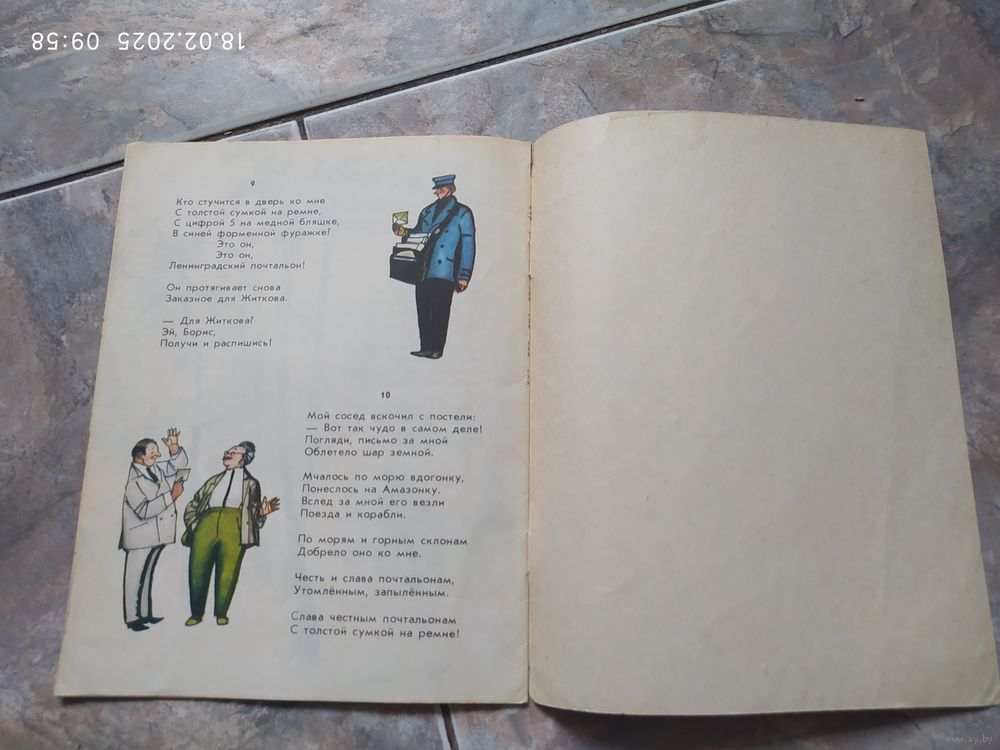 18.02.2025 09:58
9
Кто стучится в дверь ко мне
С толстой сумкой на ремне,
С цифрой 5 на медной бляшке,
В синей форменной фуражке?
Это он,
Это он,
Ленинградский почтальон!
Он протягивает снова
Заказное для Житкова.
— Для Житкова?
Эй, Борис,
Получи и распишись!
10
Мой сосед вскочил с постели:
— Вот так чудо в самом деле!
Погляди, письмо за мной
Облетело шар земной.
Мчалось по морю вдогонку,
Понеслось на Амазонку.
Вслед за мной его везли
Поезда и корабли.
По морям и горным склонам
Добрело оно ко мне.
Честь и слава почтальонам,
Утомлённым, запылённым.
Слава честным почтальонам
С толстой сумкой на ремне!
www.ay.by